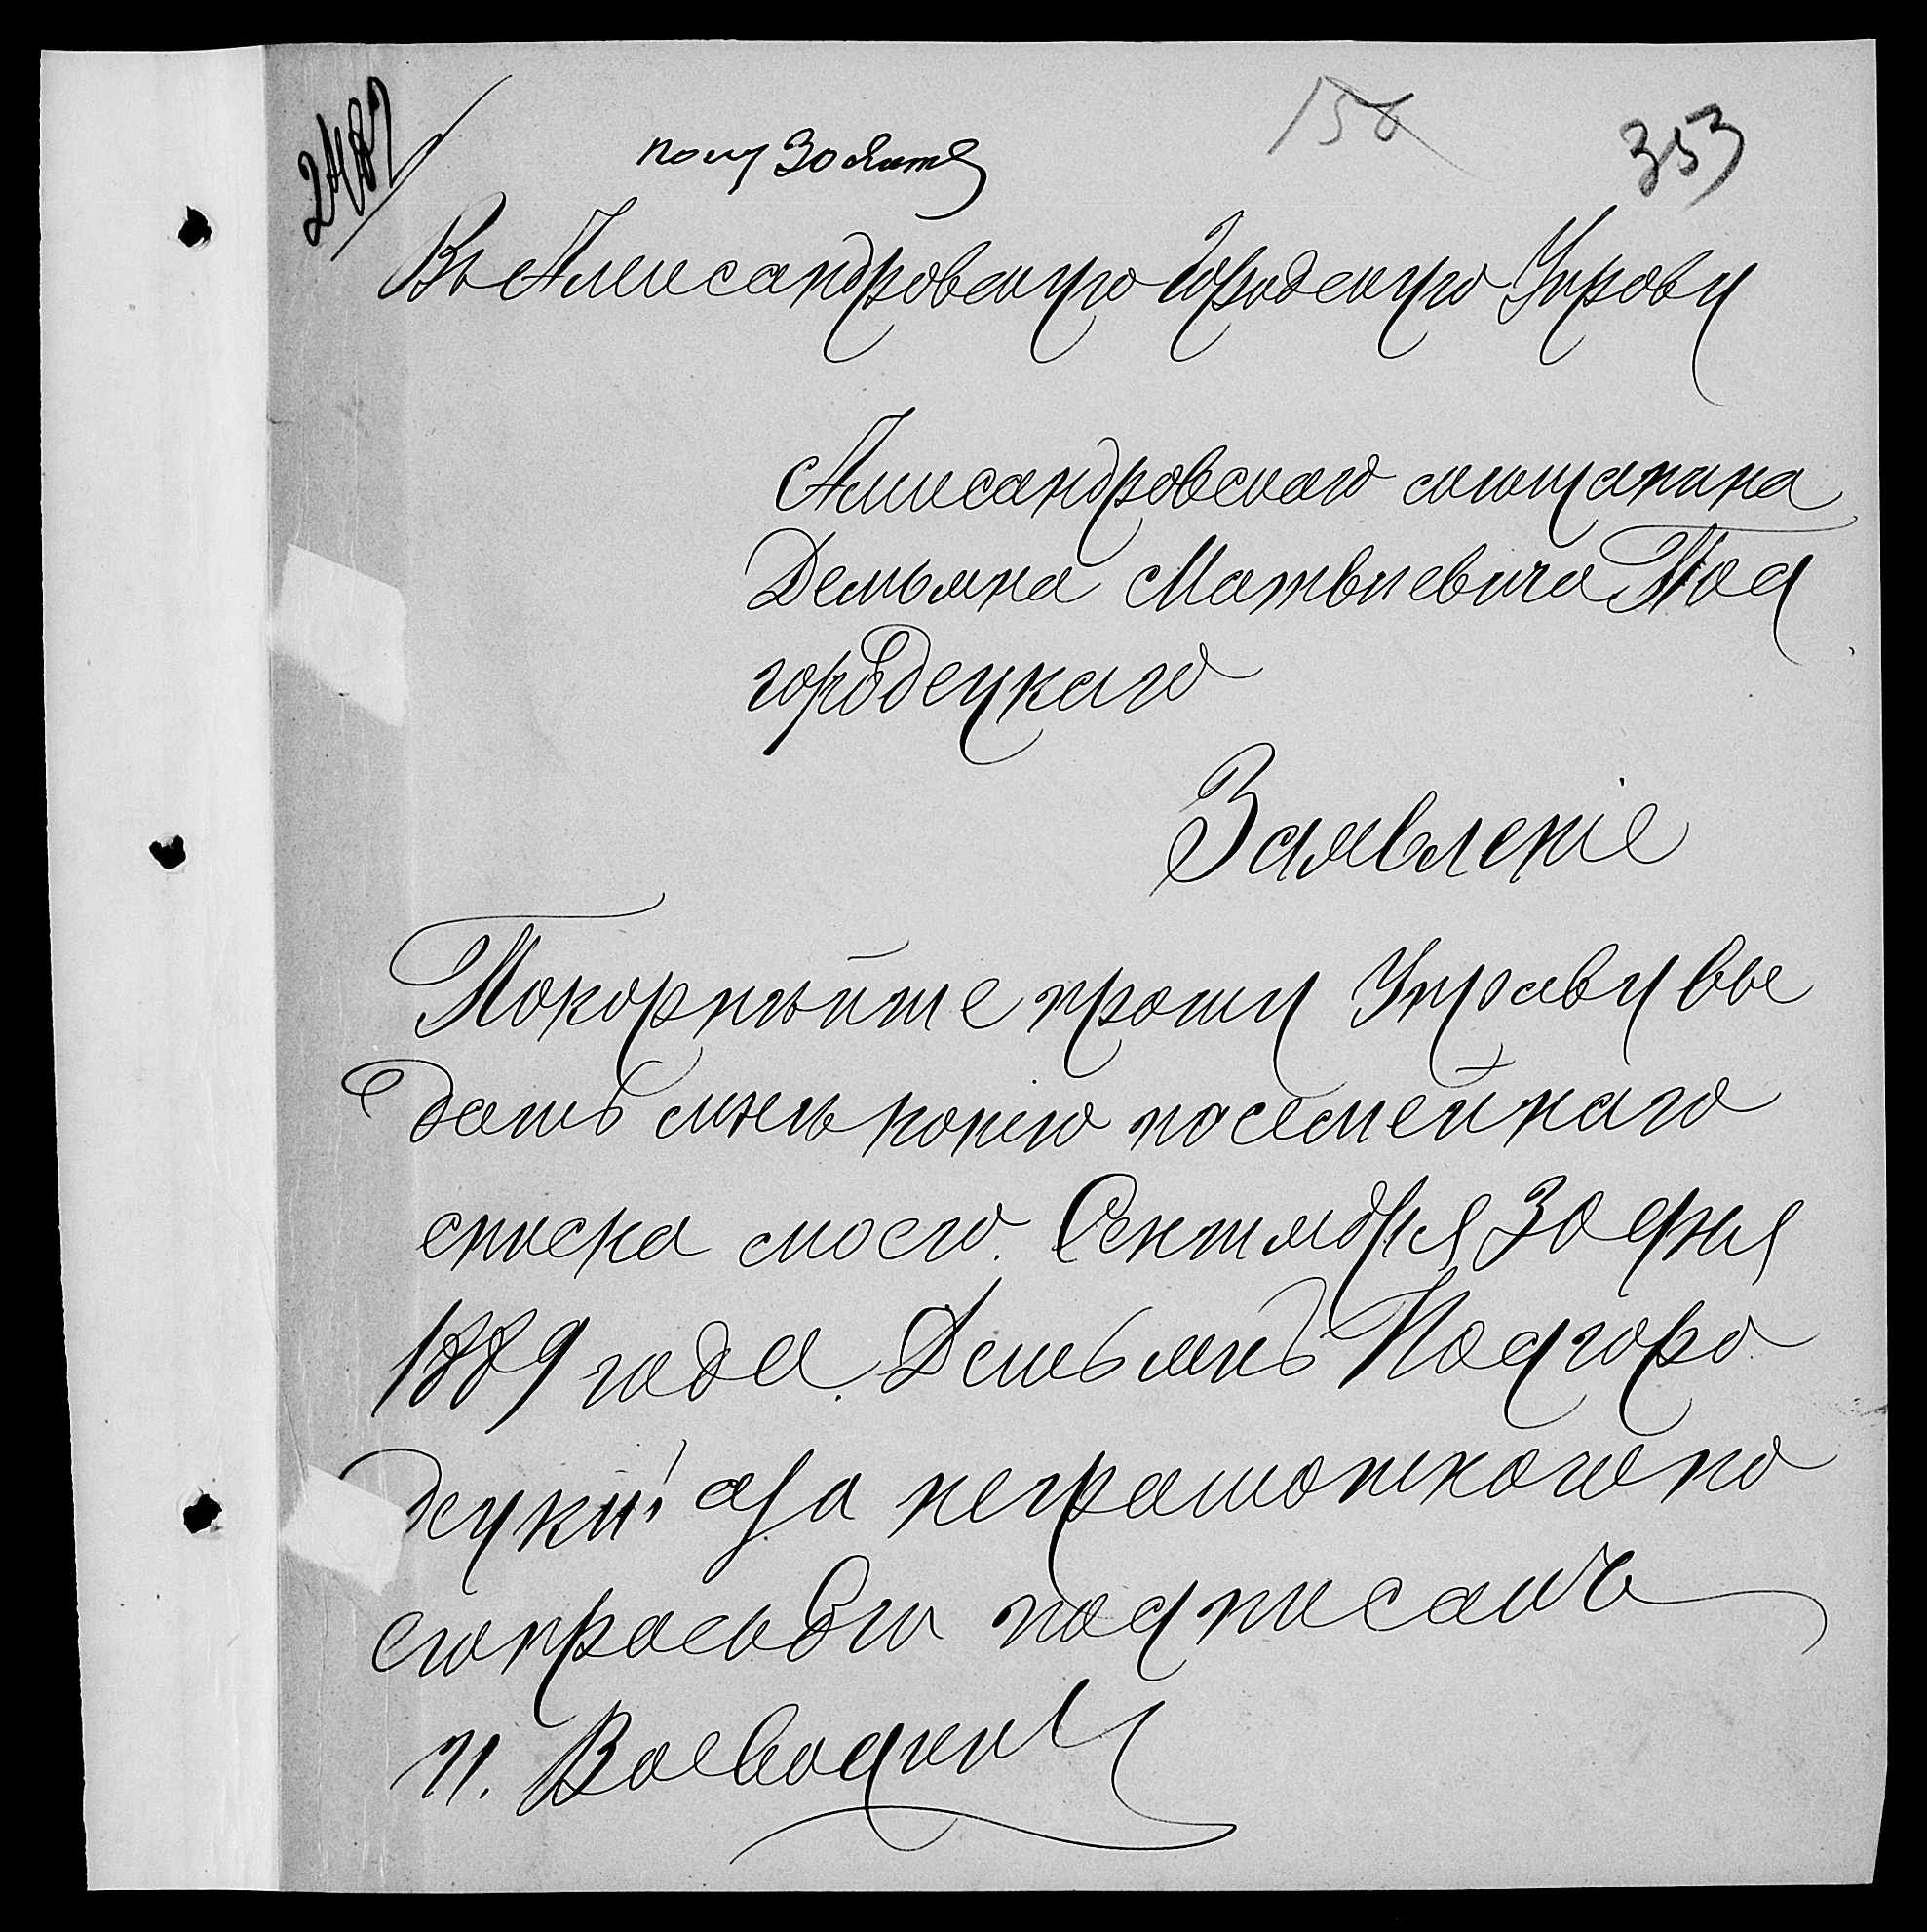 2487
пол. 30 Сент.
158
353
Въ Александровскую Городскую Управу
Александровскаго мещанина
Демьяна Матвиевича Под
городецкаго
Заявленіе
Покорнейше прошу Управу вы
дать мнѣ копію посемейнаго
списка моего. Сентября 30 дня
1889 года. Демьянъ Подгоро
децкий а за неграмотнаго по
его просьбы подписалъ
П. Воеводин